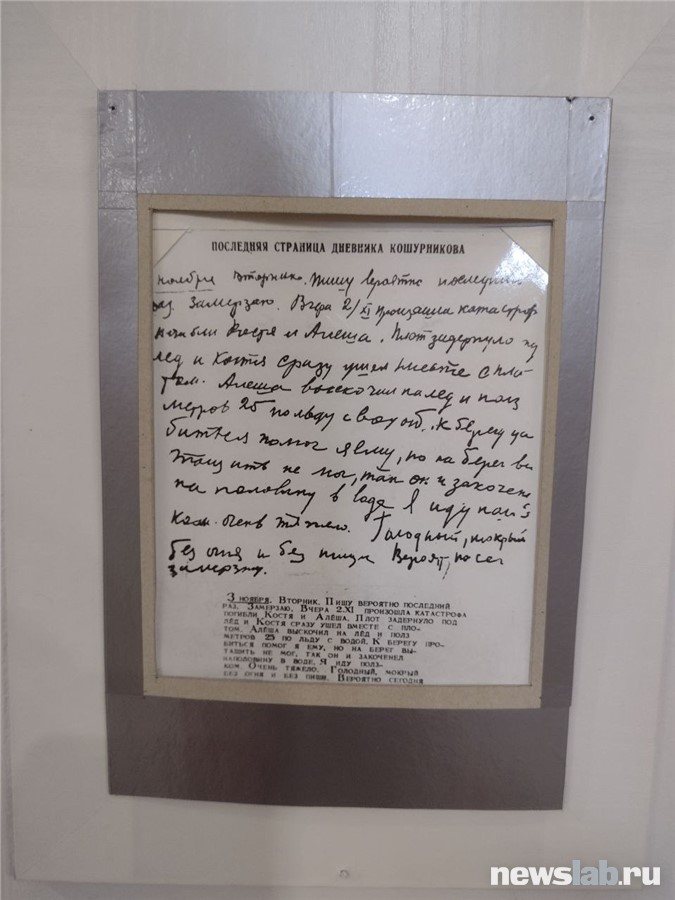 ПОСЛЕДНЯЯ СТРАНИЦА ДНЕВНИКА КОШУРНИКОВА
ноября вторник. Пишу вероятно последний
раз. Замерзаю. Вчера 2/XI произошла катастроф
погибли Костя и Алеша. Плот задернуло по
лед и Костя сразу ушел вместе с пло-
том. Алеша выскочил на лед и полз
метров 25 по льду с водой. К берегу про
биться помог я ему, но на берег вы
тащить не мог, так он и закочене
на половину в воде Я иду полз
ком. очень тяжело. Голодный, мокрый
без огня и без пищи Вероят, но сег
замерзну.
3 НОЯБРЯ. ВТОРНИК. ПИШУ ВЕРОЯТНО ПОСЛЕДНИЙ
РАЗ. ЗАМЕРЗАЮ. ВЧЕРА 2.XI ПРОИЗОШЛА КАТАСТРОФА
ПОГИБЛИ КОСТЯ И АЛЁША. ПЛОТ ЗАДЕРНУЛО ПОД
ЛЁД И КОСТЯ СРАЗУ УШЕЛ ВМЕСТЕ С ПЛО-
ТОМ. АЛЁША ВЫСКОЧИЛ НА ЛЁД И ПОЛЗ
МЕТРОВ 25 ПО ЛЬДУ С ВОДОЙ. К БЕРЕГУ ПРО-
БИТЬСЯ ПОМОГ Я ЕМУ, НО НА БЕРЕГ ВЫ-
ТАЩИТЬ НЕ МОГ, ТАК ОН И ЗАКОЧЕНЕЛ
НАПОЛОВИНУ В ВОДЕ. Я ИДУ ПОЛЗ-
КОМ. ОЧЕНЬ ТЯЖЕЛО. ГОЛОДНЫЙ, МОКРЫЙ
БЕЗ ОГНЯ И БЕЗ ПИЩИ. ВЕРОЯТНО СЕГОДНЯ
newslab.ru